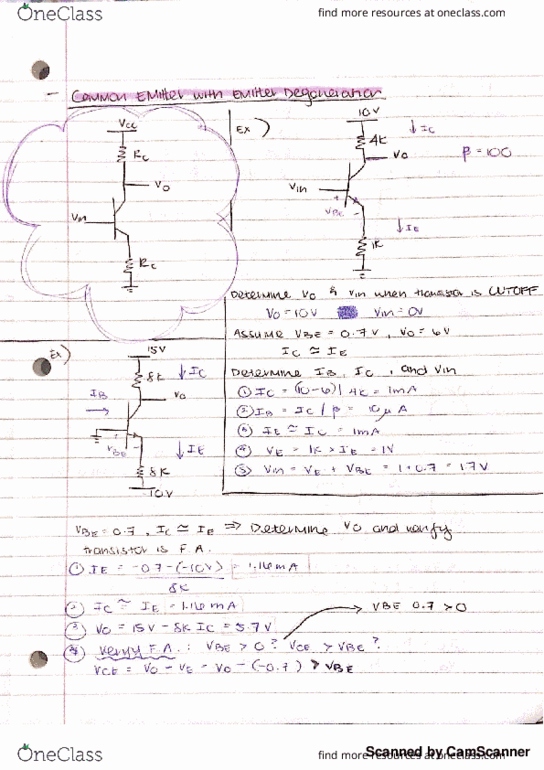 OneClass
find more resources at oneclass.com
- Common Emitter with Emitter Degeneration
Vcc
Rc
Vo
Vin
Rc
Ex)
10V
4K
↓ Ic
Vo
β = 100
Vin
+
VBE -
↓ IE
1K
Determine Vo & Vin when transistor is CUTOFF
Vo = 10V Vin = 0V
Assume VBE = 0.7V, Vo = 6V
Ic ≃ IE
Determine IB, Ic, and Vin
① Ic = (10-6)/4K = 1mA
② IB = Ic/β = 10μA
③ IE ≃ Ic = 1mA
④ VE = 1K × IE = 1V
⑤ Vin = VE + VBE = 1+0.7 = 1.7V
Ex)
15V
8K
↓ Ic
Vo
IB
→
+
VBE -
↓ IE
8K
-10V
VBE = 0.7, Ic ≃ IE ⇒ Determine Vo and verify
transistor is F.A.
① IE = -0.7-(-10V) = 1.16mA
8K
② Ic ≃ IE = 1.16mA
③ Vo = 15V - 8K Ic = 5.7V
→ VBE 0.7 > 0
④ Verify F.A.: VBE > 0? VCE > VBE?
VCE = Vo - VE = Vo - (-0.7) > VBE
OneClass
find more resources at oneclass.com
Scanned by CamScanner